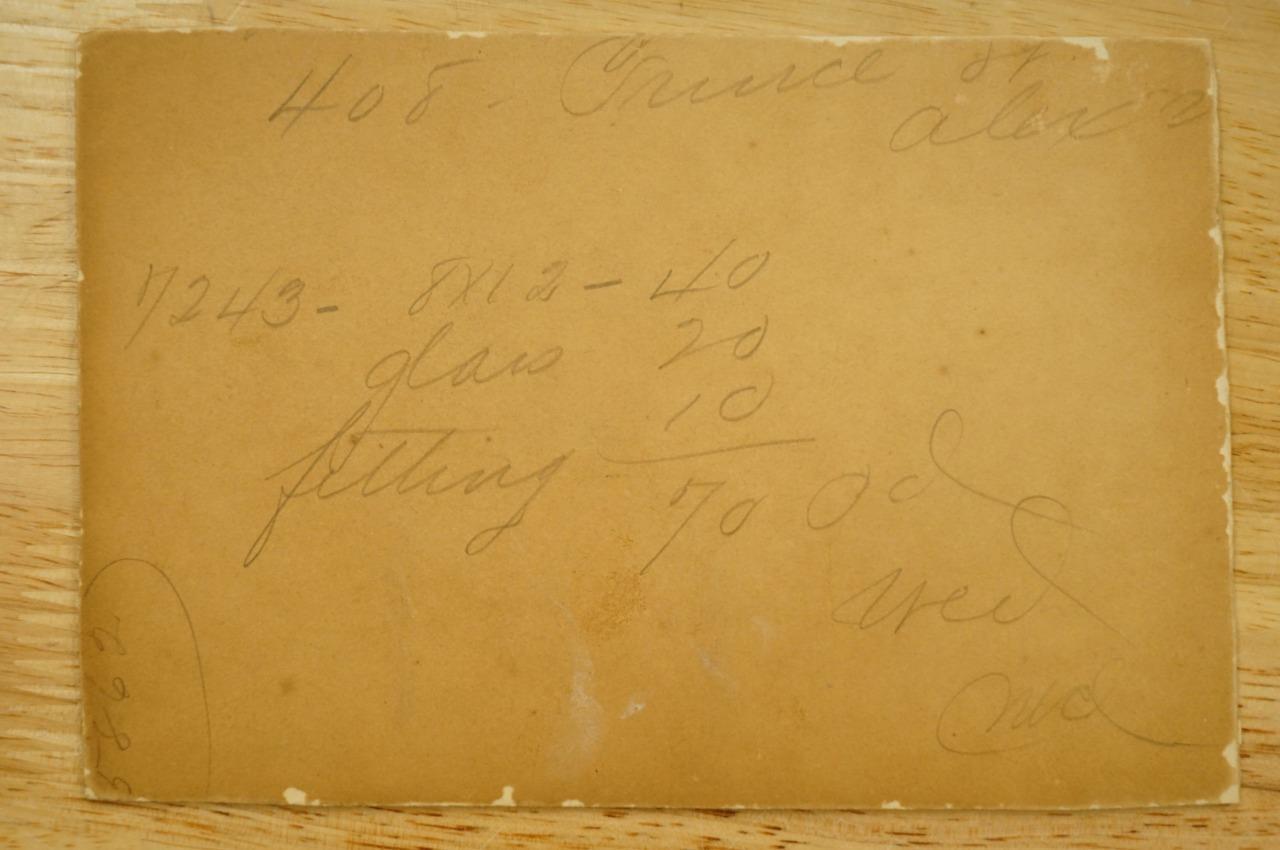 408 - Prince St
alex
7243 - 8x12 - 40
glass 20
10
fitting
70 Od
Wed
5862